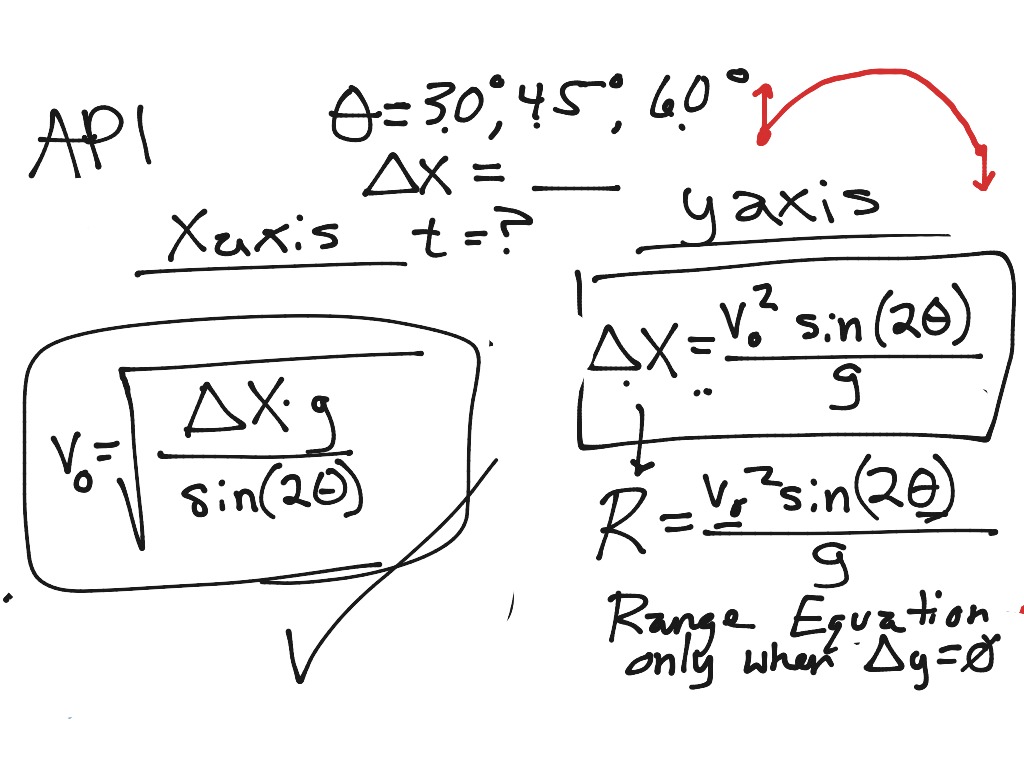 AP1
θ = 30°, 45°, 60°
Δx = ___
x axis
t = ?
y axis
Δx = v₀² sin(2θ) / g
v₀ = √(Δx · g / sin(2θ))
R = v₀² sin(2θ) / g
Range Equation
only when Δy = 0